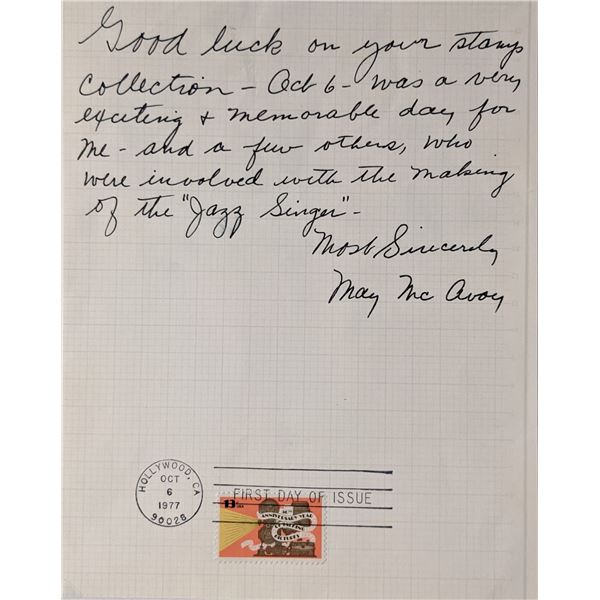 Good luck on your stamp
collection - Oct 6 - was a very
exciting & memorable day for
me - and a few others, who
were involved with the making
of the "Jazz Singer" -
Most Sincerely
May Mc Avoy
HOLLYWOOD, CA
OCT
6
1977
90028
FIRST DAY OF ISSUE
13c
USA
50TH
ANNIVERSARY YEAR
OF TALKING
PICTURES